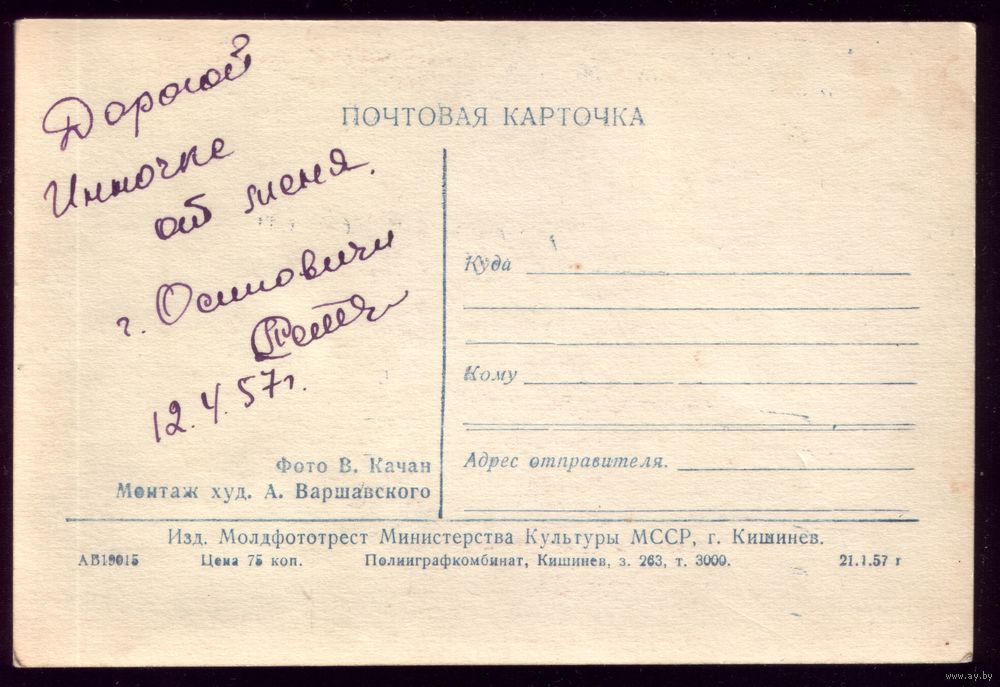 Дорогой
Инночке
от меня.
г. Осиповичи
12.4.57г.
ПОЧТОВАЯ КАРТОЧКА
Куда
Кому
Адрес отправителя.
Фото В. Качан
Монтаж худ. А. Варшавского
Изд. Молдфототрест Министерства Культуры МССР, г. Кишинев.
АБ19015 Цена 75 коп. Полииграфкомбинат, Кишинев, з. 263, т. 3000. 21.1.57 г
www.ay.by